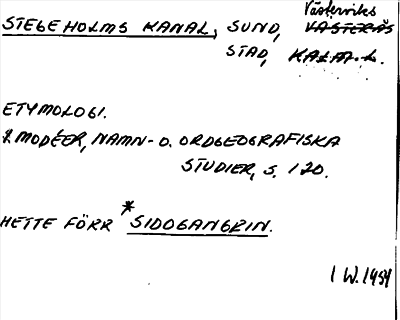 STEGEHOLMS KANAL, SUND, Västerviks VÄSTERÅS
STAD, KALM. L.
ETYMOLOGI.
I. MODÉER, NAMN- O. ORDGEOGRAFISKA
STUDIER, S. 120.
HETTE FÖRR *SIDOGANGRIN.
I W. 1954